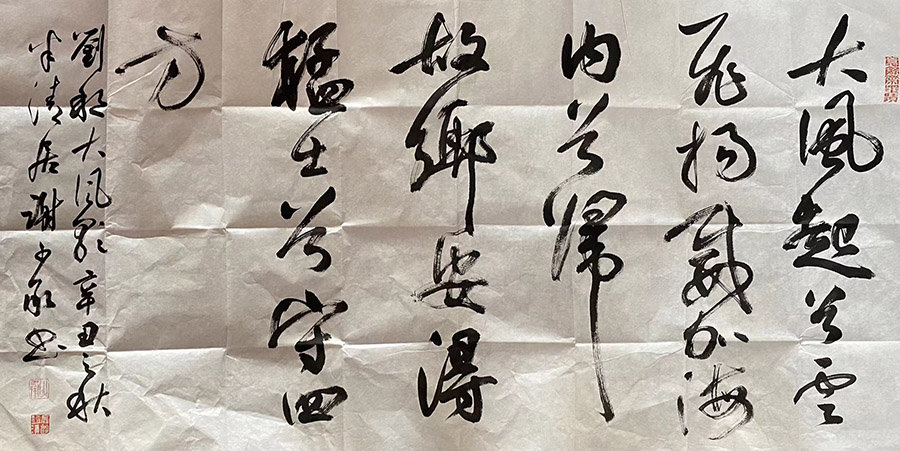 大風起兮雲
飛揚威加海
內兮歸
故鄉安得
猛士兮守四
方
劉邦大風歌辛丑之秋
半清居謝少承書